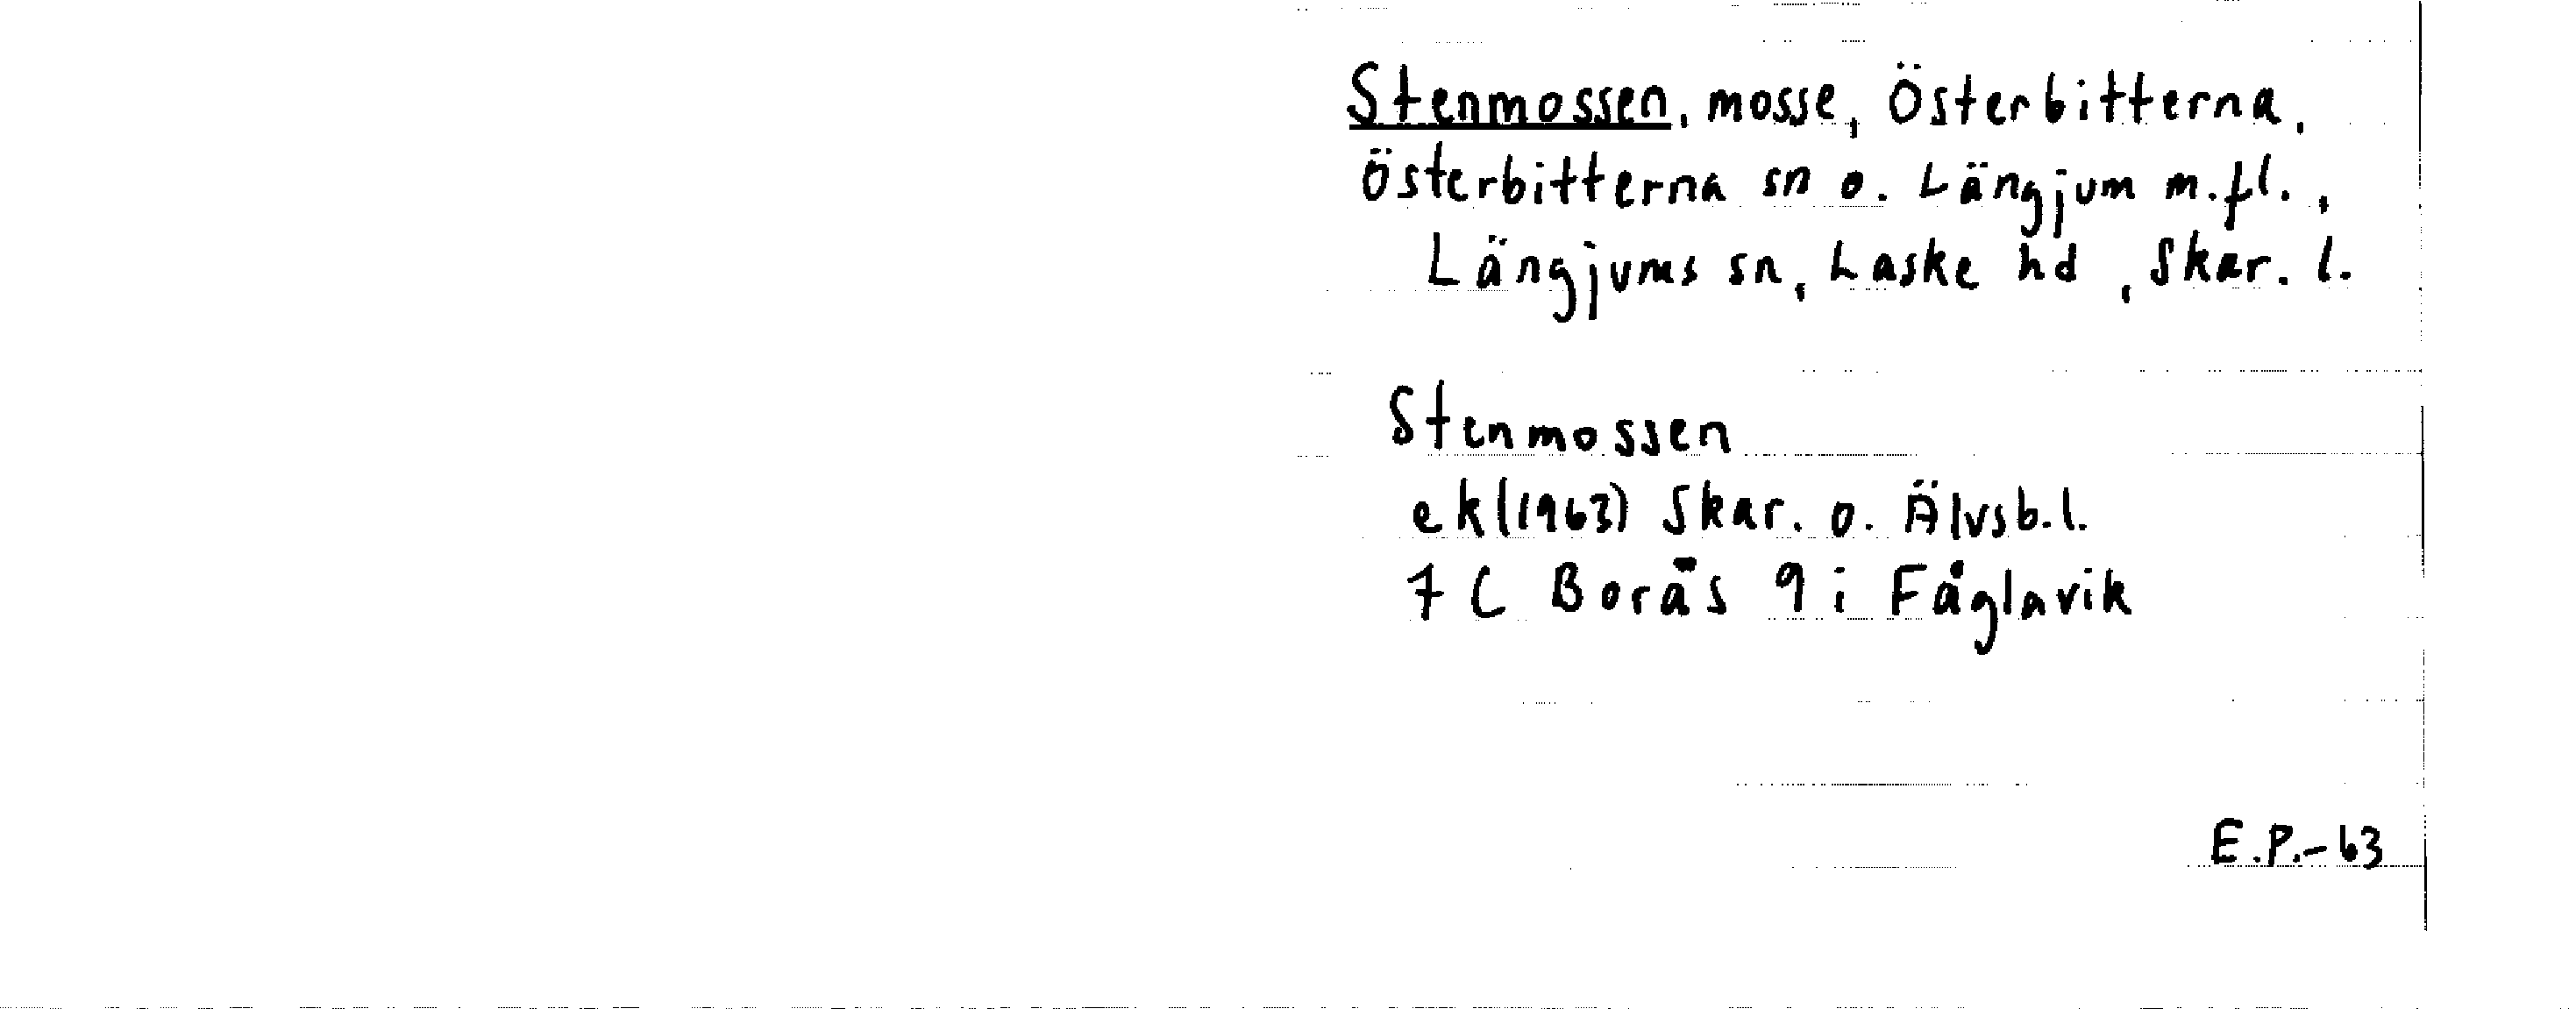 Stenmossen, mosse, Österbitterna,
Österbitterna sn o. Längjum m.fl.,
Längjums sn, Laske hd, Skar. l.
Stenmossen
ek (1963) Skar. o. Älvsb. l.
7 C Borås 9 i Fåglavik
E.P.-63